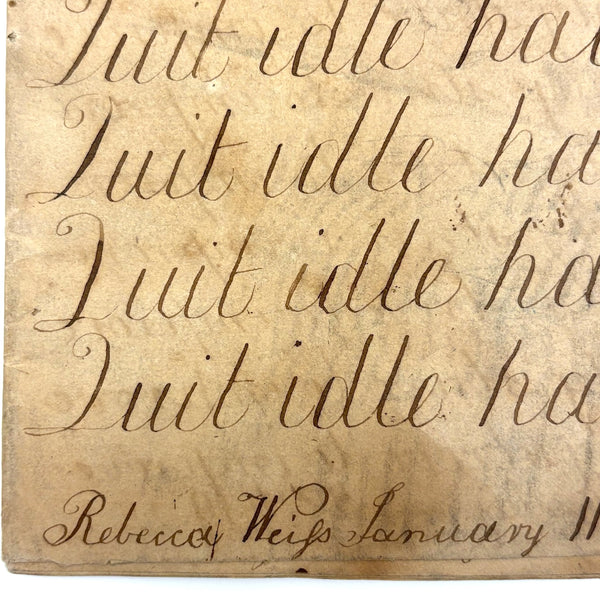 Quit idle ha
Quit idle ha
Quit idle ha
Quit idle ha
Rebecca Weiſs January 11